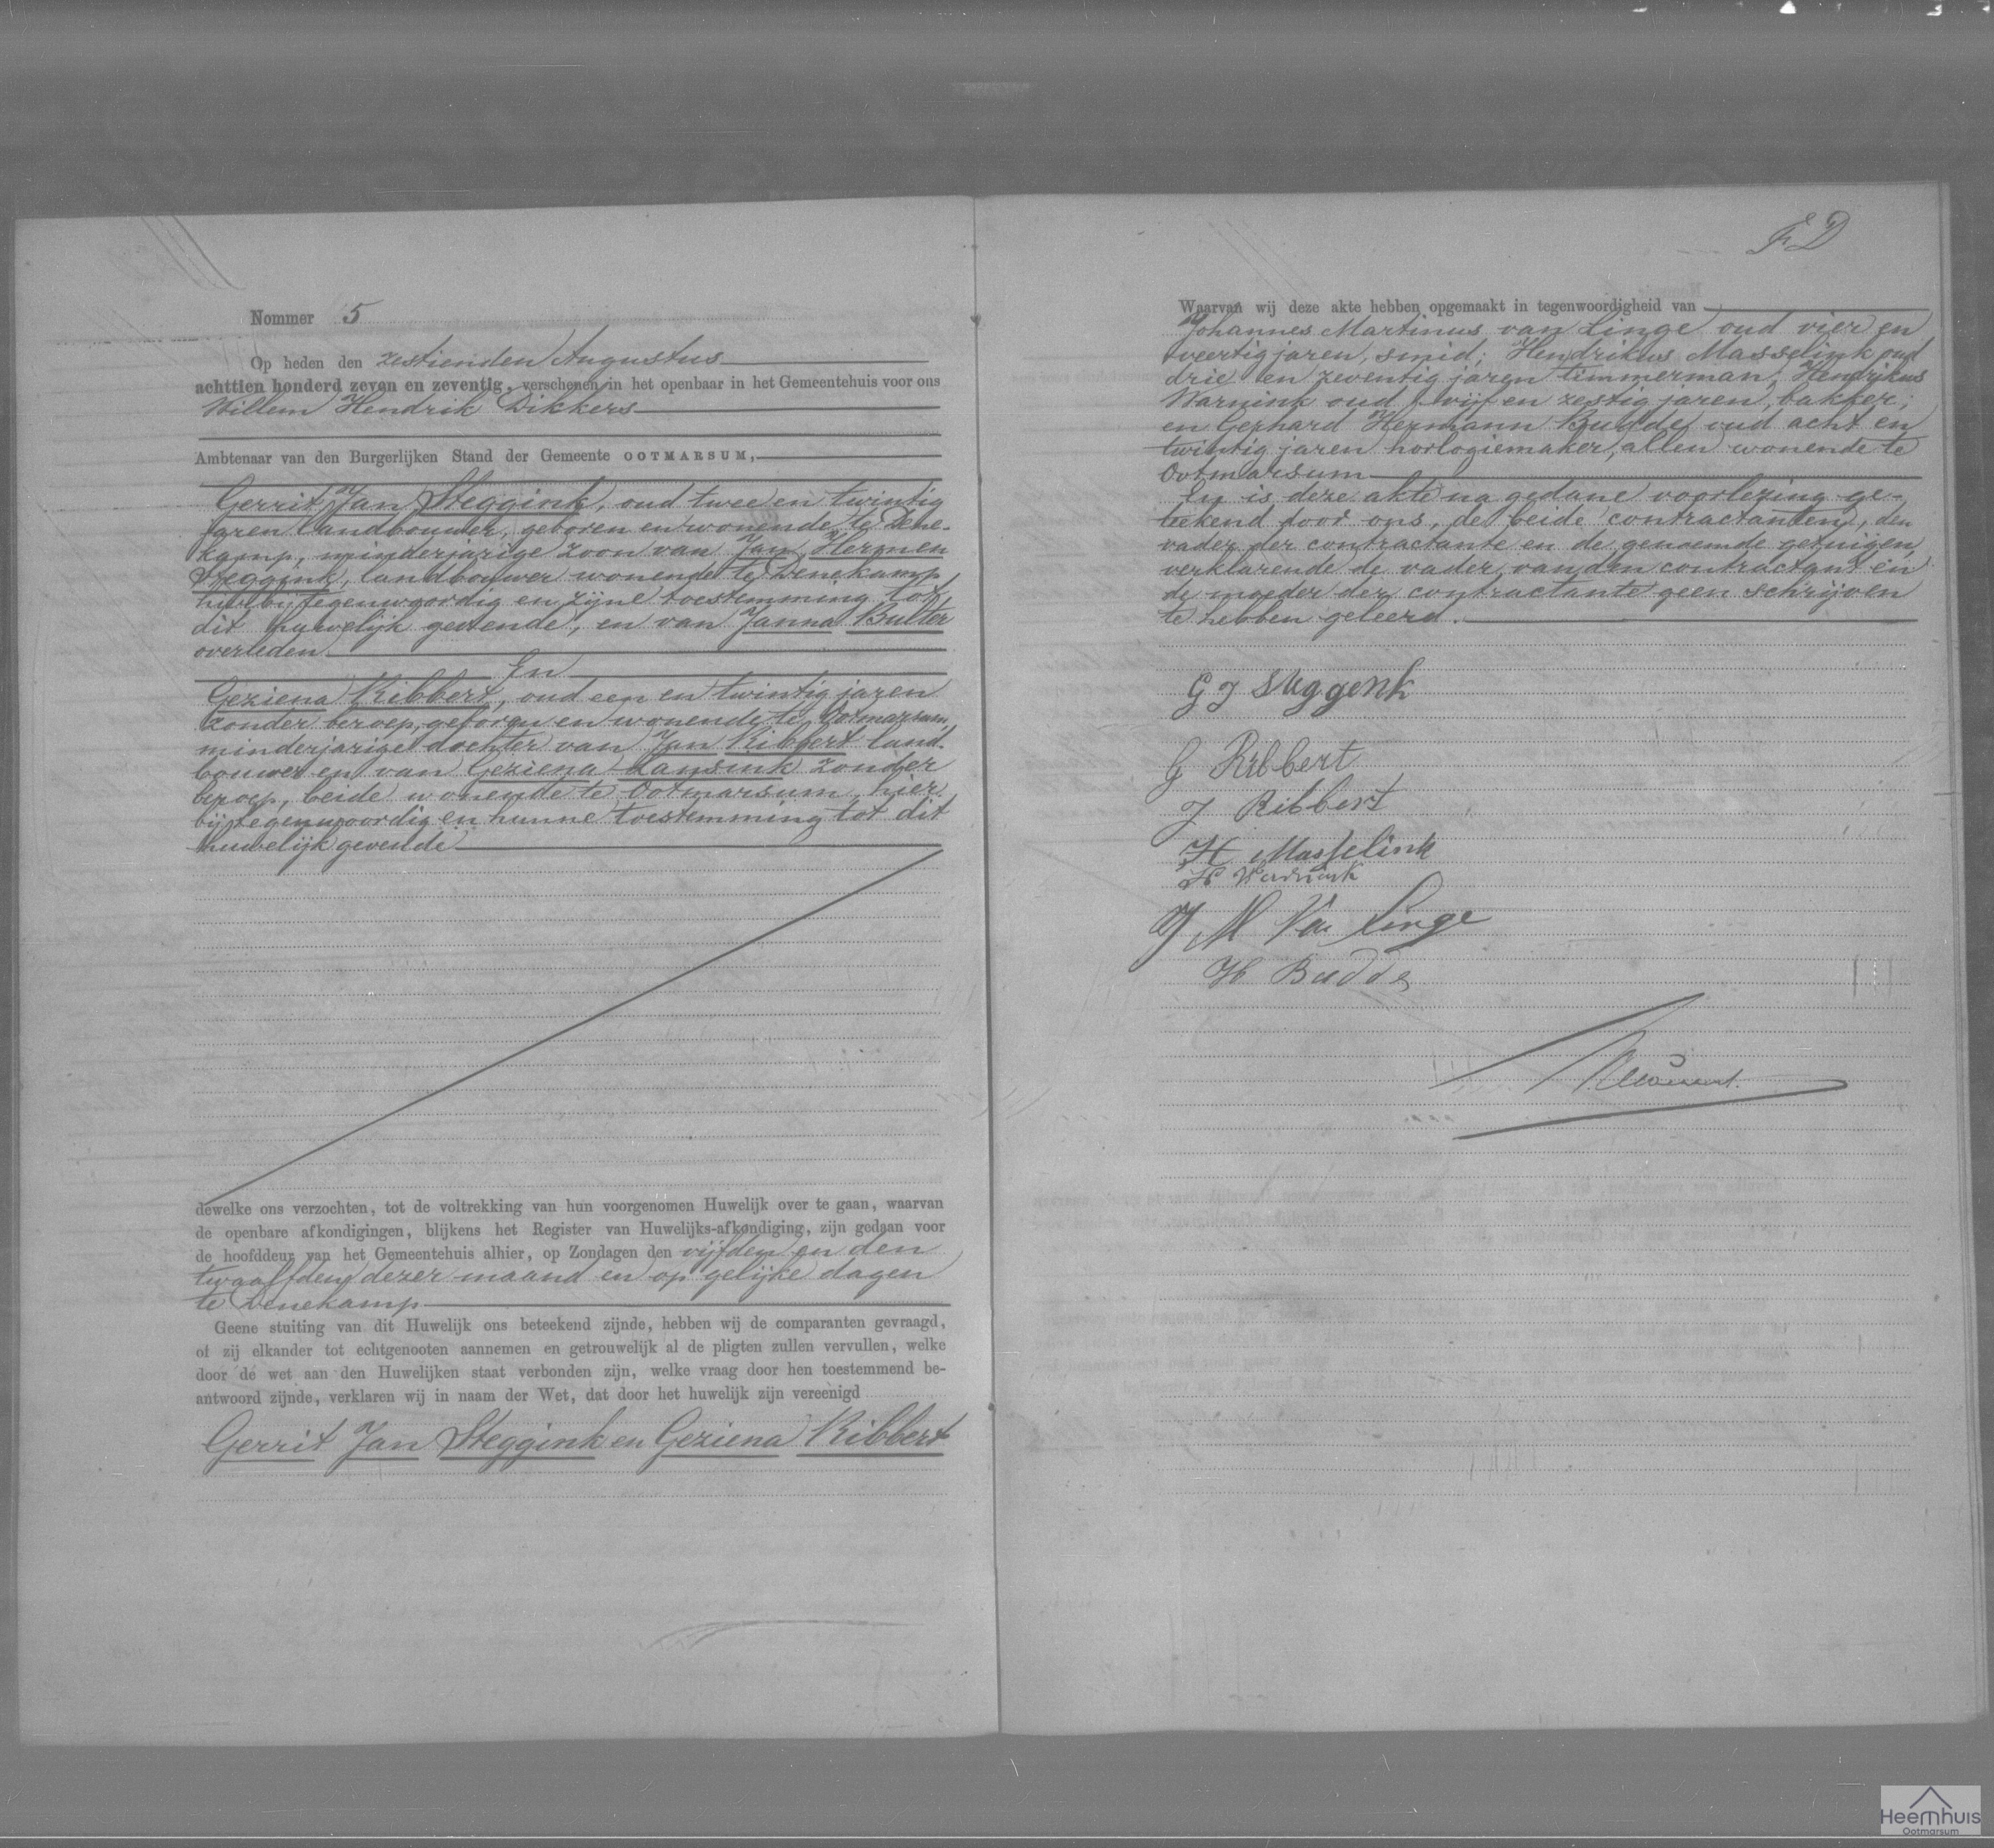 Nommer 5
Op heden den zestienden Augustus
achttien honderd zeven en zeventig, verschenen in het openbaar in het Gemeentehuis voor ons
Willem Hendrik Dikkers
Ambtenaar van den Burgerlijken Stand der Gemeente OOTMARSUM,
Gerrit Jan Steggink, oud twee en twintig
jaren landbouwer, geboren en wonende te Dene-
kamp, minderjarige zoon van Jan Hermen
Steggink, landbouwer wonende te Denekamp
hierbij tegenwoordig en zijne toestemming tot
dit huwelijk gevende, en van Janna Bulter
overleden
En
Geziena Ribbert, oud een en twintig jaren
zonder beroep, geboren en wonende te Ootmarsum,
minderjarige dochter van Jan Ribbert land-
bouwer en van Geziena Lansink zonder
beroep, beide wonende te Ootmarsum, hier
bij tegenwoordig en hunne toestemming tot dit
huwelijk gevende
dewelke ons verzochten, tot de voltrekking van hun voorgenomen Huwelijk over te gaan, waarvan
de openbare afkondigingen, blijkens het Register van Huwelijks-afkondiging, zijn gedaan voor
de hoofddeur van het Gemeentehuis alhier, op Zondagen den vijfden en den
twaalfden dezer maand en op gelijke dagen
te Denekamp
Geene stuiting van dit Huwelijk ons beteekend zijnde, hebben wij de comparanten gevraagd,
of zij elkander tot echtgenooten aannemen en getrouwelijk al de pligten zullen vervullen, welke
door de wet aan den Huwelijken staat verbonden zijn, welke vraag door hen toestemmend be-
antwoord zijnde, verklaren wij in naam der Wet, dat door het huwelijk zijn vereenigd
Gerrit Jan Steggink en Geziena Ribbert
FD
Waarvan wij deze akte hebben opgemaakt in tegenwoordigheid van
Johannes Martinus van Linge oud vier en
veertig jaren, smid; Hendrikus Masselink oud
drie en zeventig jaren timmerman, Hendrikus
Warnink oud vijf en zestig jaren, bakker;
en Gerhard Hermann Budde, oud acht en
twintig jaren horlogiemaker, allen wonende te
Ootmarsum
En is deze akte na gedane voorlezing ge-
teekend door ons, de beide contractanten, den
vader der contractante en de genoemde getuigen,
verklarende de vader van den contractant en
de moeder der contractante geen schrijven
te hebben geleerd.
G J Steggenk
G Ribbert
J Ribbert
H Masselink
H Warnink
J M Van Linge
H Budde
Heemhuis
Ootmarsum